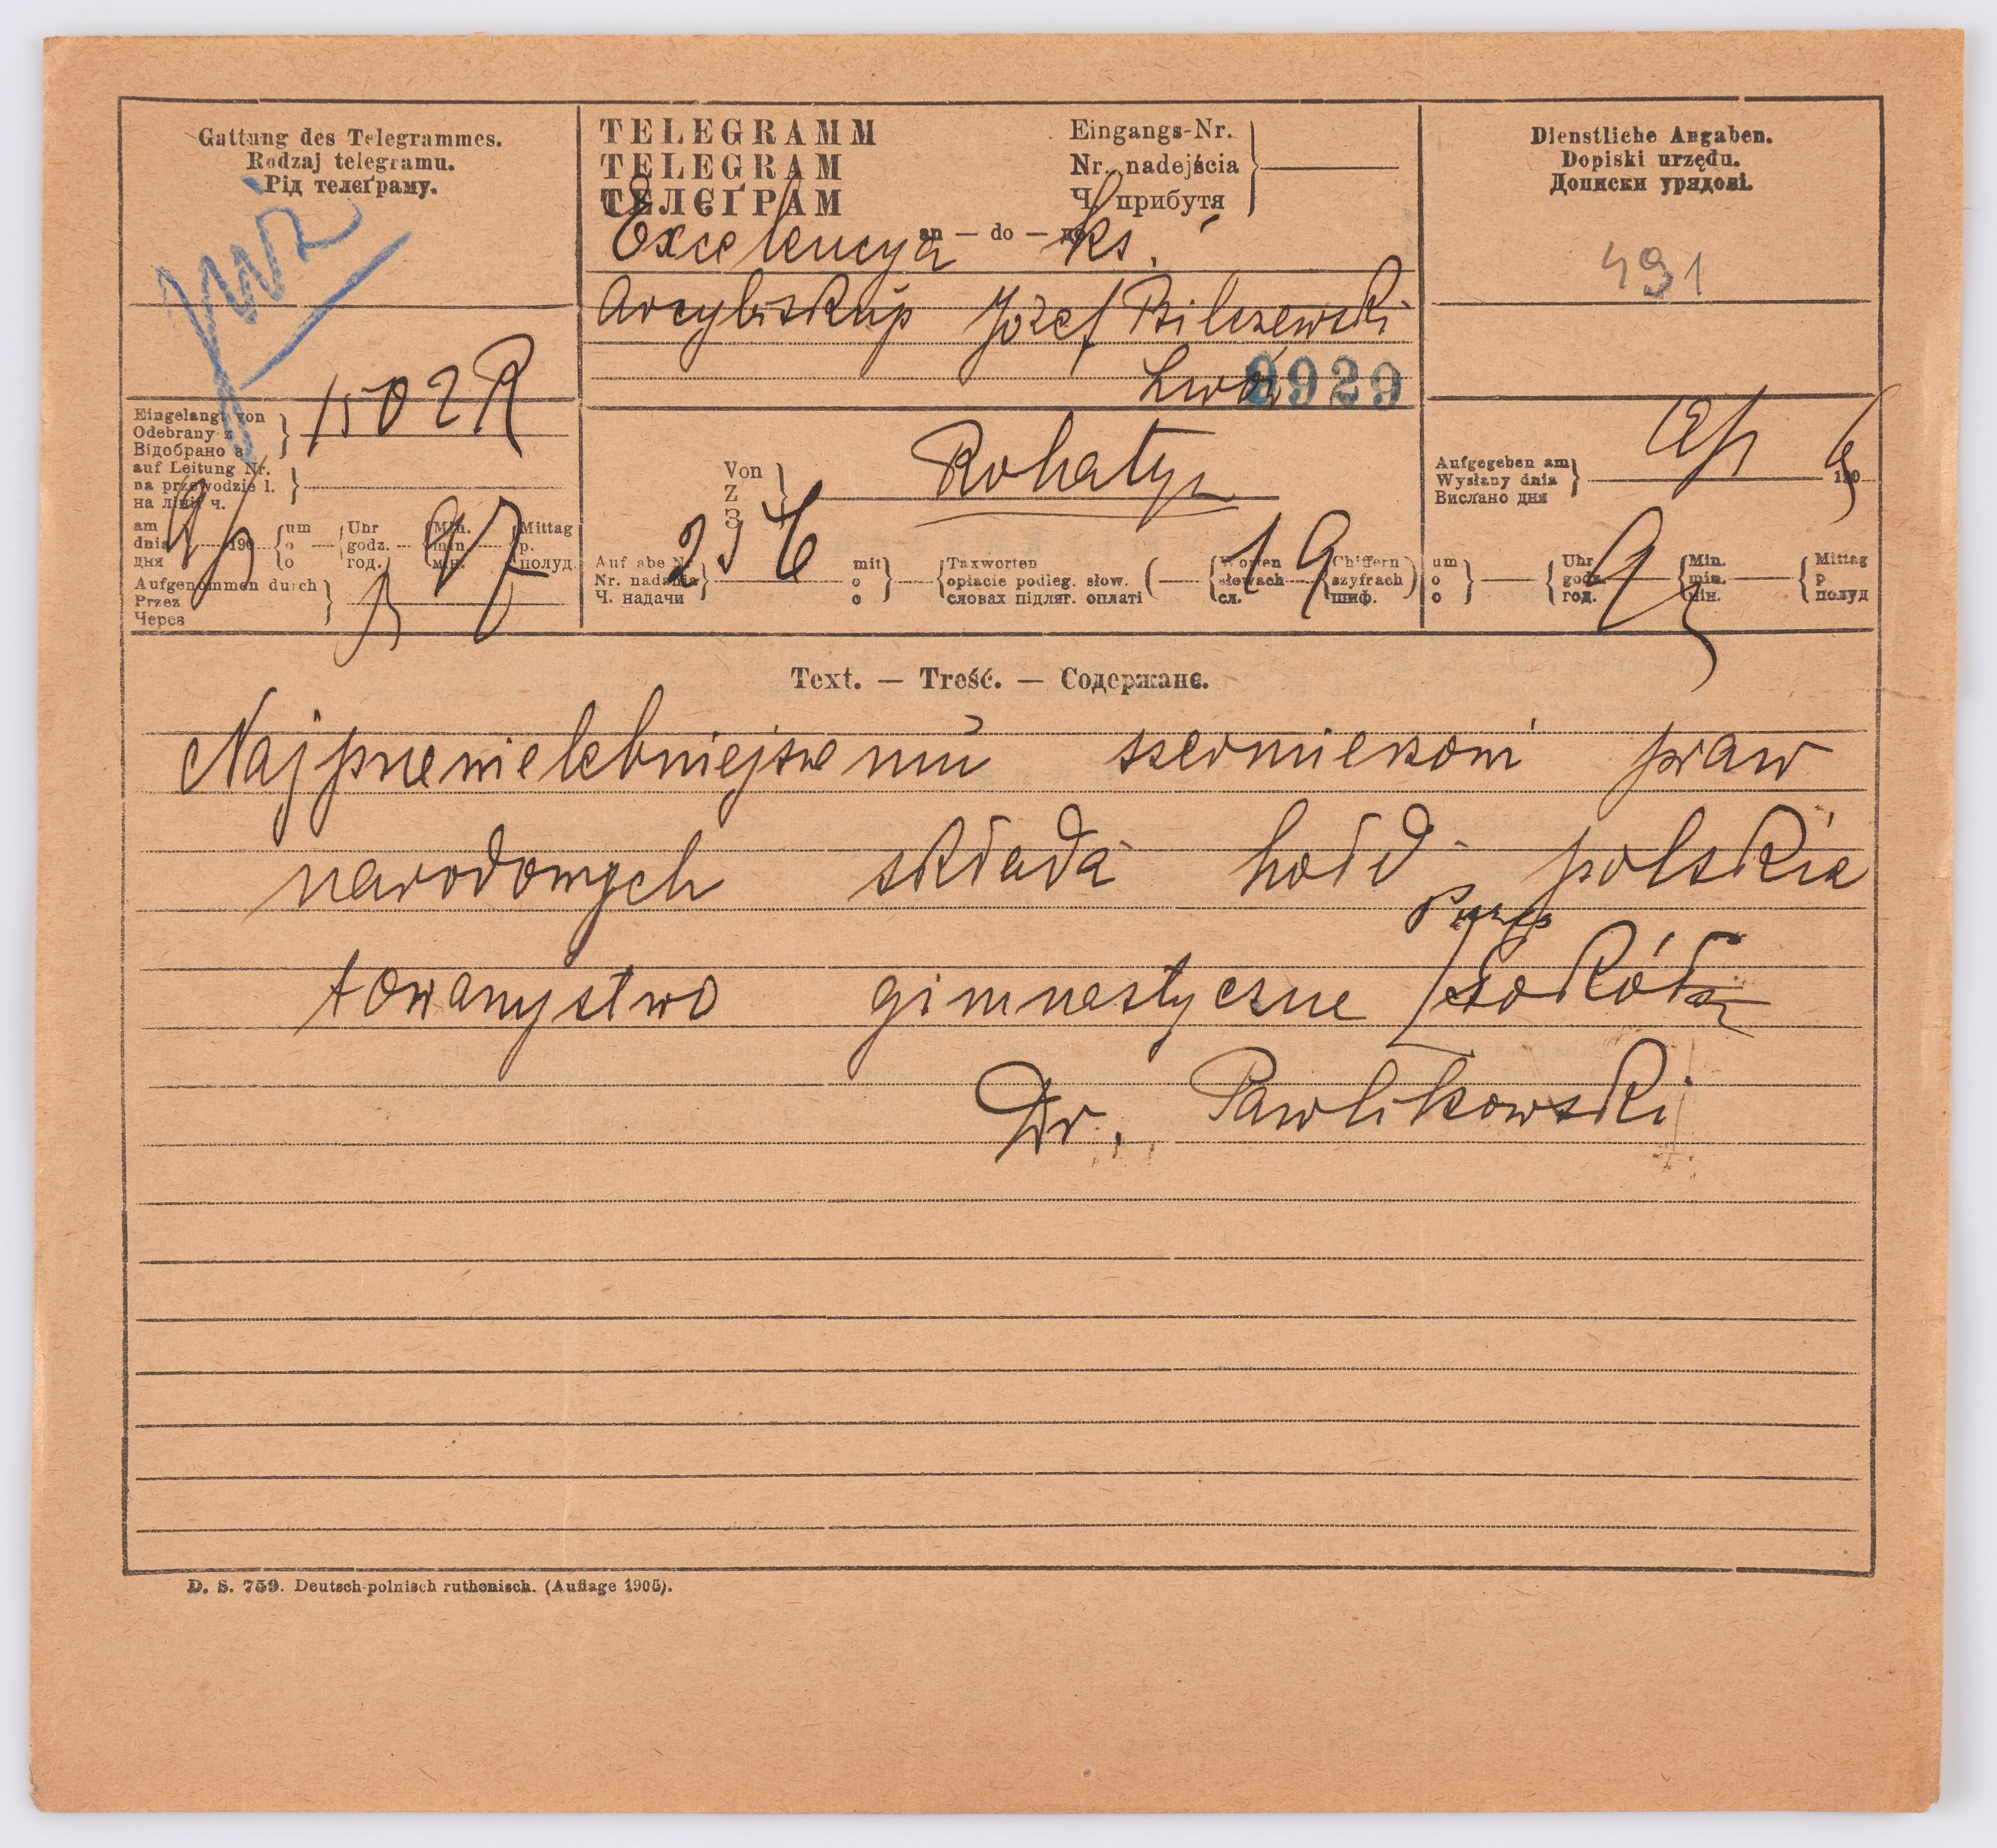 Gattung des Telegrammes.
Rodzaj telegramu.
Рід телєґраму.
TELEGRAMM
TELEGRAM
ТЕЛЄҐРАМ
Eingangs-Nr.
Nr. nadejścia
Ч. прибутя
an — do — до
Dienstliche Angaben.
Dopiski urzędu.
Дописки урядові.
491
Excelencya ks.
Arcybiskup Józef Bilczewski
Lwów
9929
Eingelangt von
Odebrany z
Відобрано з
1502R
auf Leitung Nr.
na przewodzie l.
на лінії ч.
am
dnia
дня
190
um
o
o
Uhr
godz.
год.
Min.
min.
мін.
Mittag
p.
полуд.
Aufgenommen durch
Przez
Через
Von
Z
З
Rohatyn
Aufgabe Nr.
Nr. nadania
Ч. надачи
236
mit
o
o
Taxworten
opłacie podleg. słow.
словах підляг. оплаті
Worten
słowach
сл.
19
Chiffern
szyfrach
шиф.
Aufgegeben am
Wysłany dnia
Вислано дня
190
um
o
o
Uhr
godz.
год.
Min.
min.
мін.
Mittag
p
полуд
Text. — Treść. — Содержанє.
Najprzewielebniejszemu szermierzowi praw
narodowych składa hołd polskie
towarzystwo gimnastyczne Sokół
Dr. Pawlikowski
D. S. 759. Deutsch-polnisch ruthenisch. (Auflage 1905).